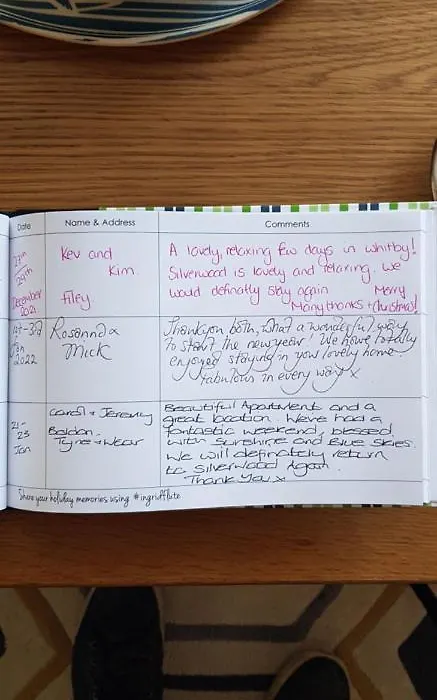 Date Name & Address Comments
27th
29th
December
2021
Kev and
Kim.
Filey
A lovely, relaxing few days in Whitby!
Silverwood is lovely and relaxing. We
would definatly stay again Merry
Many thanks + Christmas!
1st - 3rd
Jan
2022
Rosanna &
Mick
Thankyou both, what a wonderful way
to start the new year! We have totally
enjoyed staying in your lovely home
fabulous in every way x
21-
23
Jan
Carol + Jeremy
Boldon.
Tyne + Wear
Beautiful Apartment and a
great location. We've had a
fantastic weekend, blessed
with sunshine and Blue skies.
We will definately return
to Silverwood Again.
Thank You x
Share your holiday memories using #ingridflute